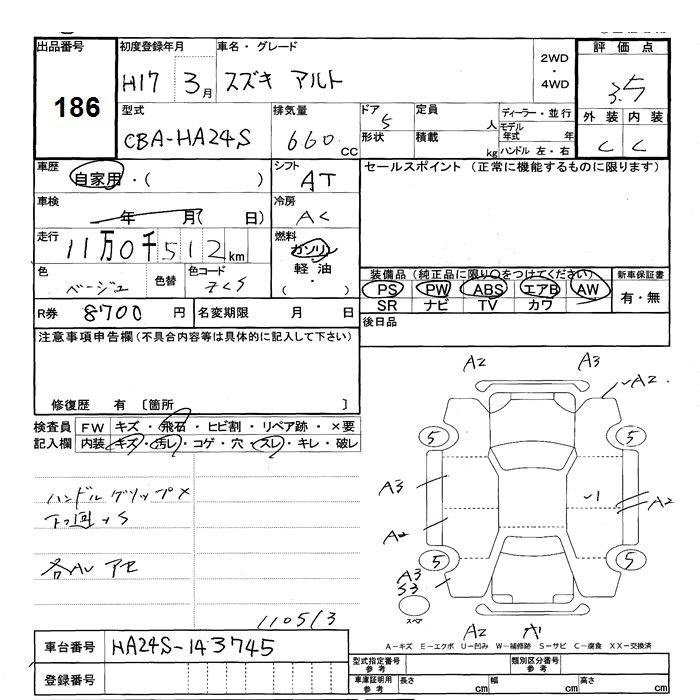 出品番号 初度登録年月 車名・グレード 2WD 評価点
186 H17 3月 スズキ アルト ・ 3.5
4WD
型式 排気量 ドア 定員 ディーラー・並行 外装 内装
CBA-HA24S 660 CC 5 人 モデル年式 年 C C
形状 積載 kg ハンドル 左・右
車歴 シフト セールスポイント (正常に機能するものに限ります)
自家用・( ) AT
車検 冷房
年 月( 日) AC
走行 燃料
11万0千512km ガソリン
軽油
( ・ )
色 色替 色コード 装備品 (純正品に限り○をつけてください) 新車保証書
ベージュ ZCS PS PW ABS エアB AW 有・無
SR ナビ TV カワ
R券 8700 円 名変期限 月 日 後日品
注意事項申告欄(不具合内容等は具体的に記入して下さい)
修復歴 有 〔箇所 〕
検査員 FW キズ・飛石・ヒビ割・リペア跡・×要
記入欄 内装 キズ・汚レ・コゲ・穴・スレ・キレ・破レ
ハンドルグリップ×
下回サS
各AU アセ
110513
A2 A3
A2
5 5
A3 -1 A2
A2
5 5
A3
S3
スペア
A2
車台番号 HA24S-143745
登録番号
A-キズ E-エクボ U-凹み W-補修跡 S-サビ C-腐食 XX-交換済
型式指定番号 参考 類別区分番号 参考
車庫証明用 参考 長さ cm 幅 cm 高さ cm